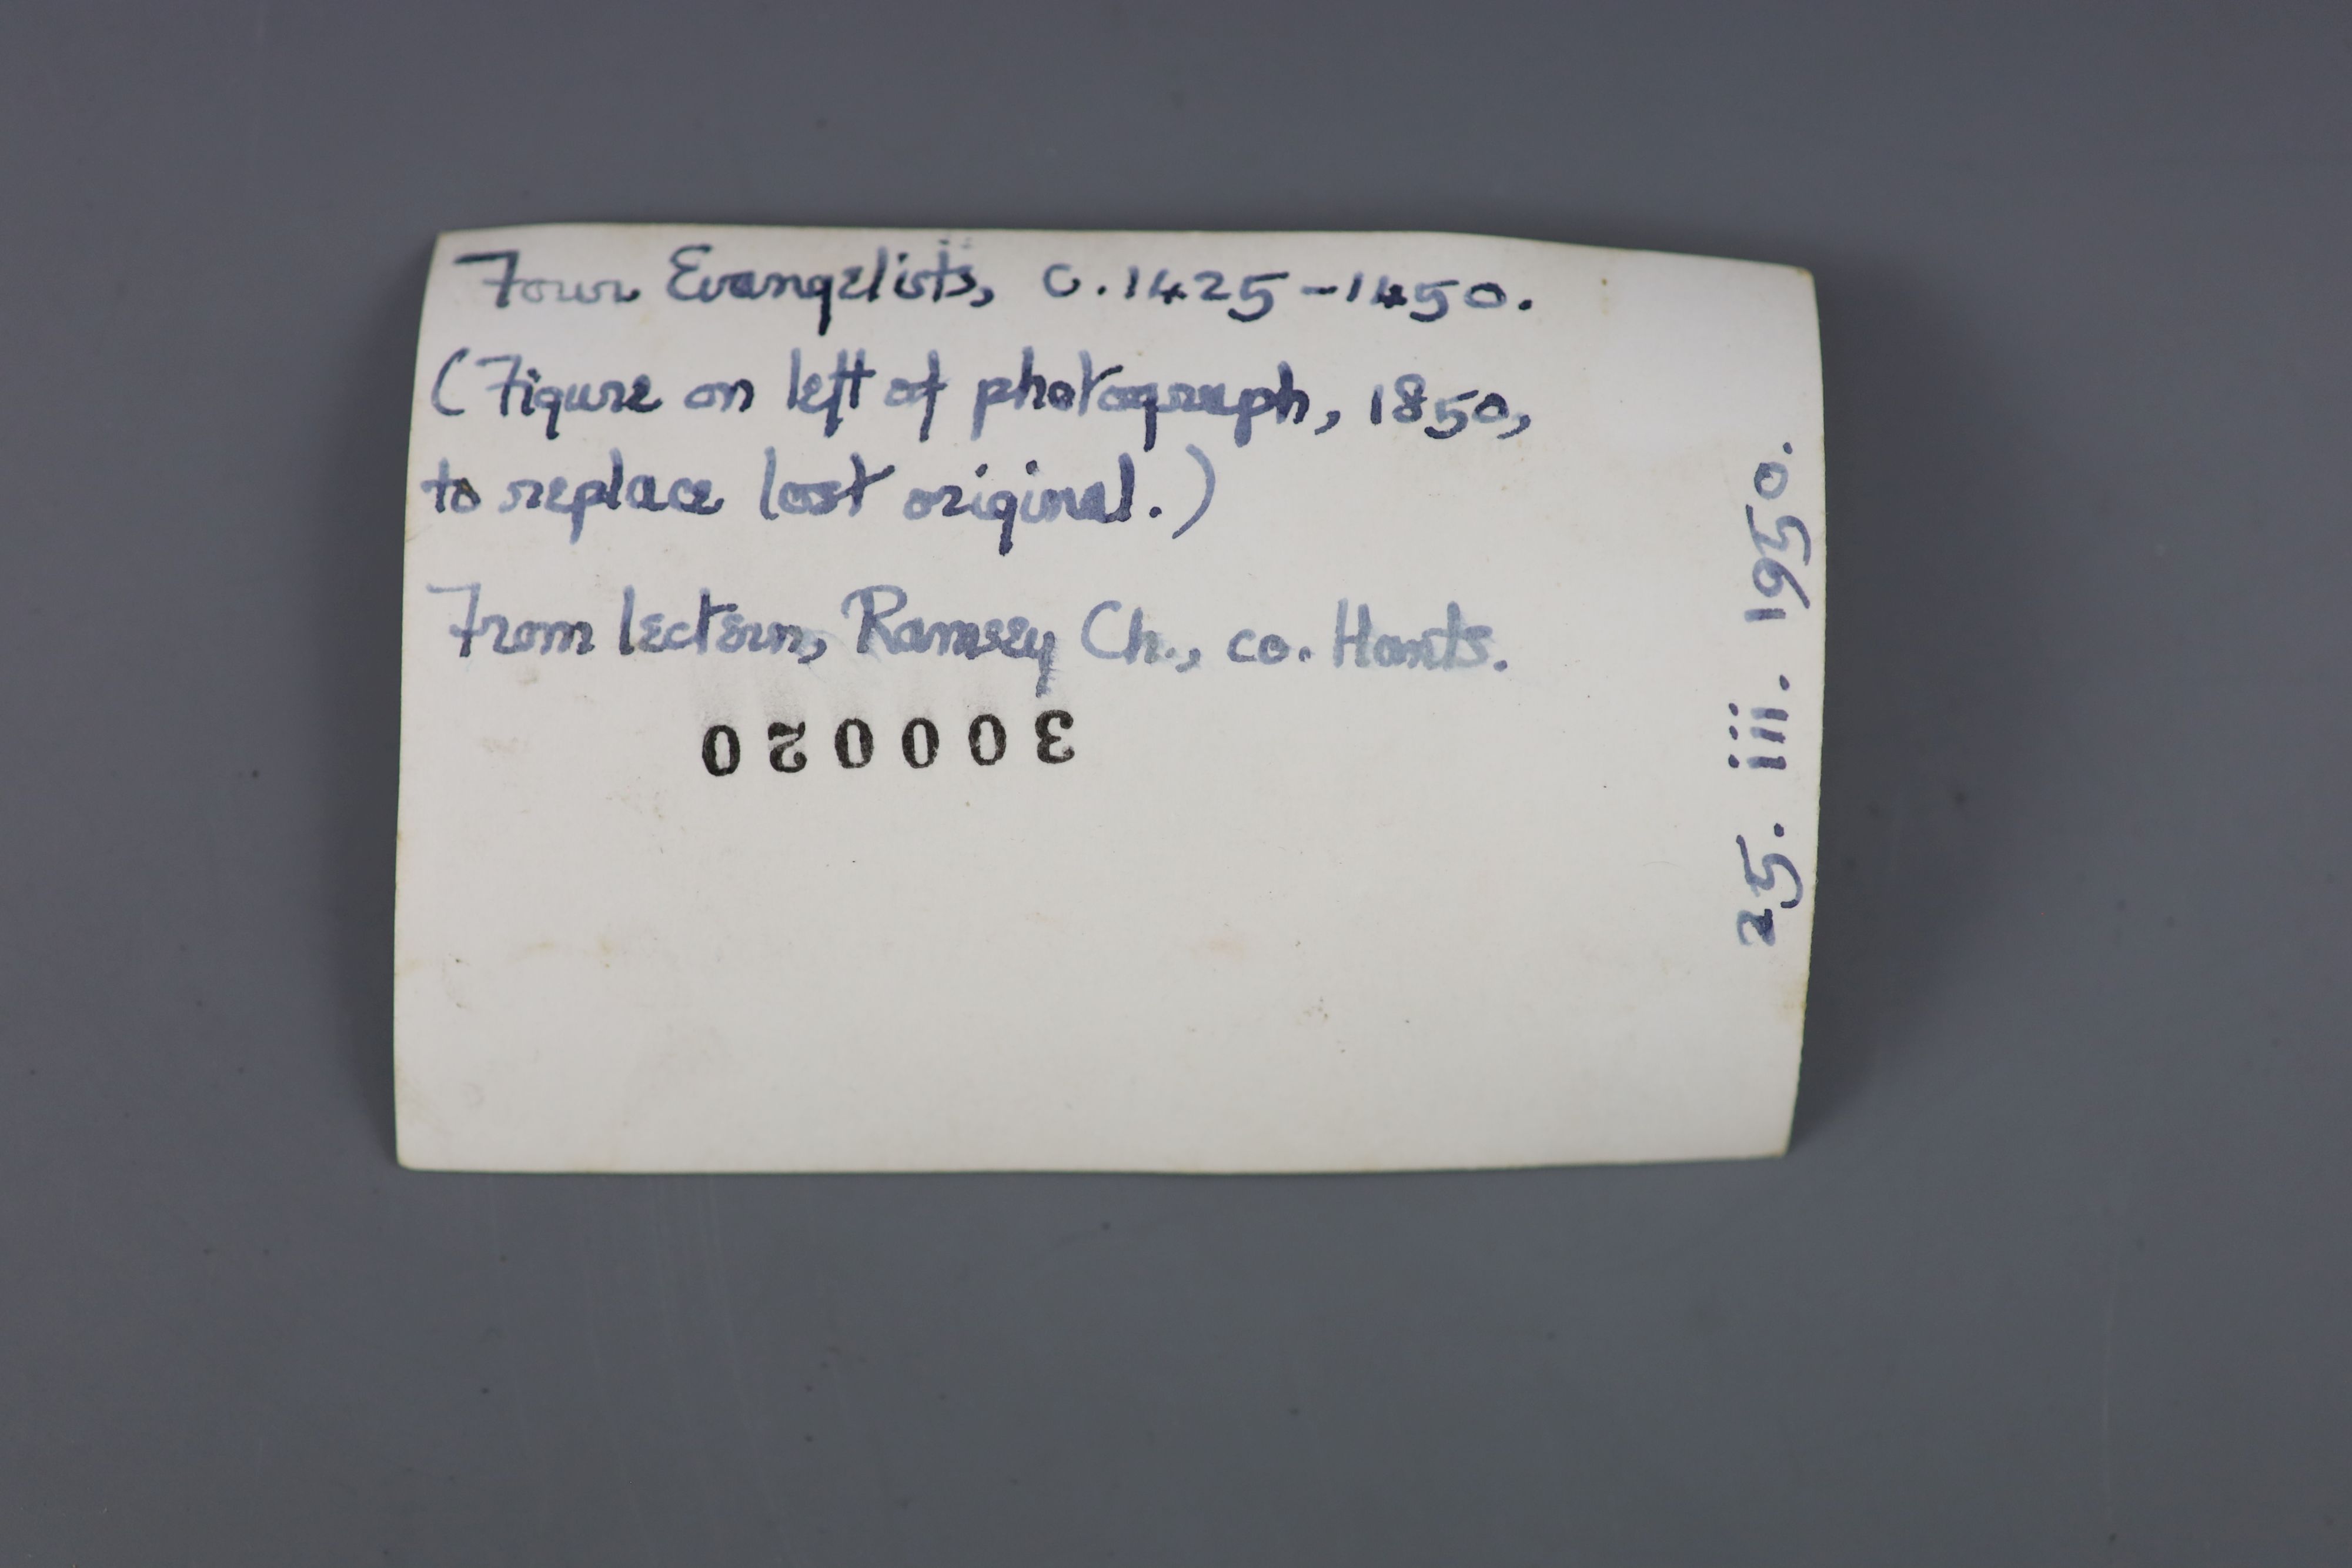 Four Evangelists, c. 1425-1450.
(Figure on left of photograph, 1850,
to replace lost original.)
From lectern, Ramsey Ch., co. Hants.
300020
25. iii. 1950.